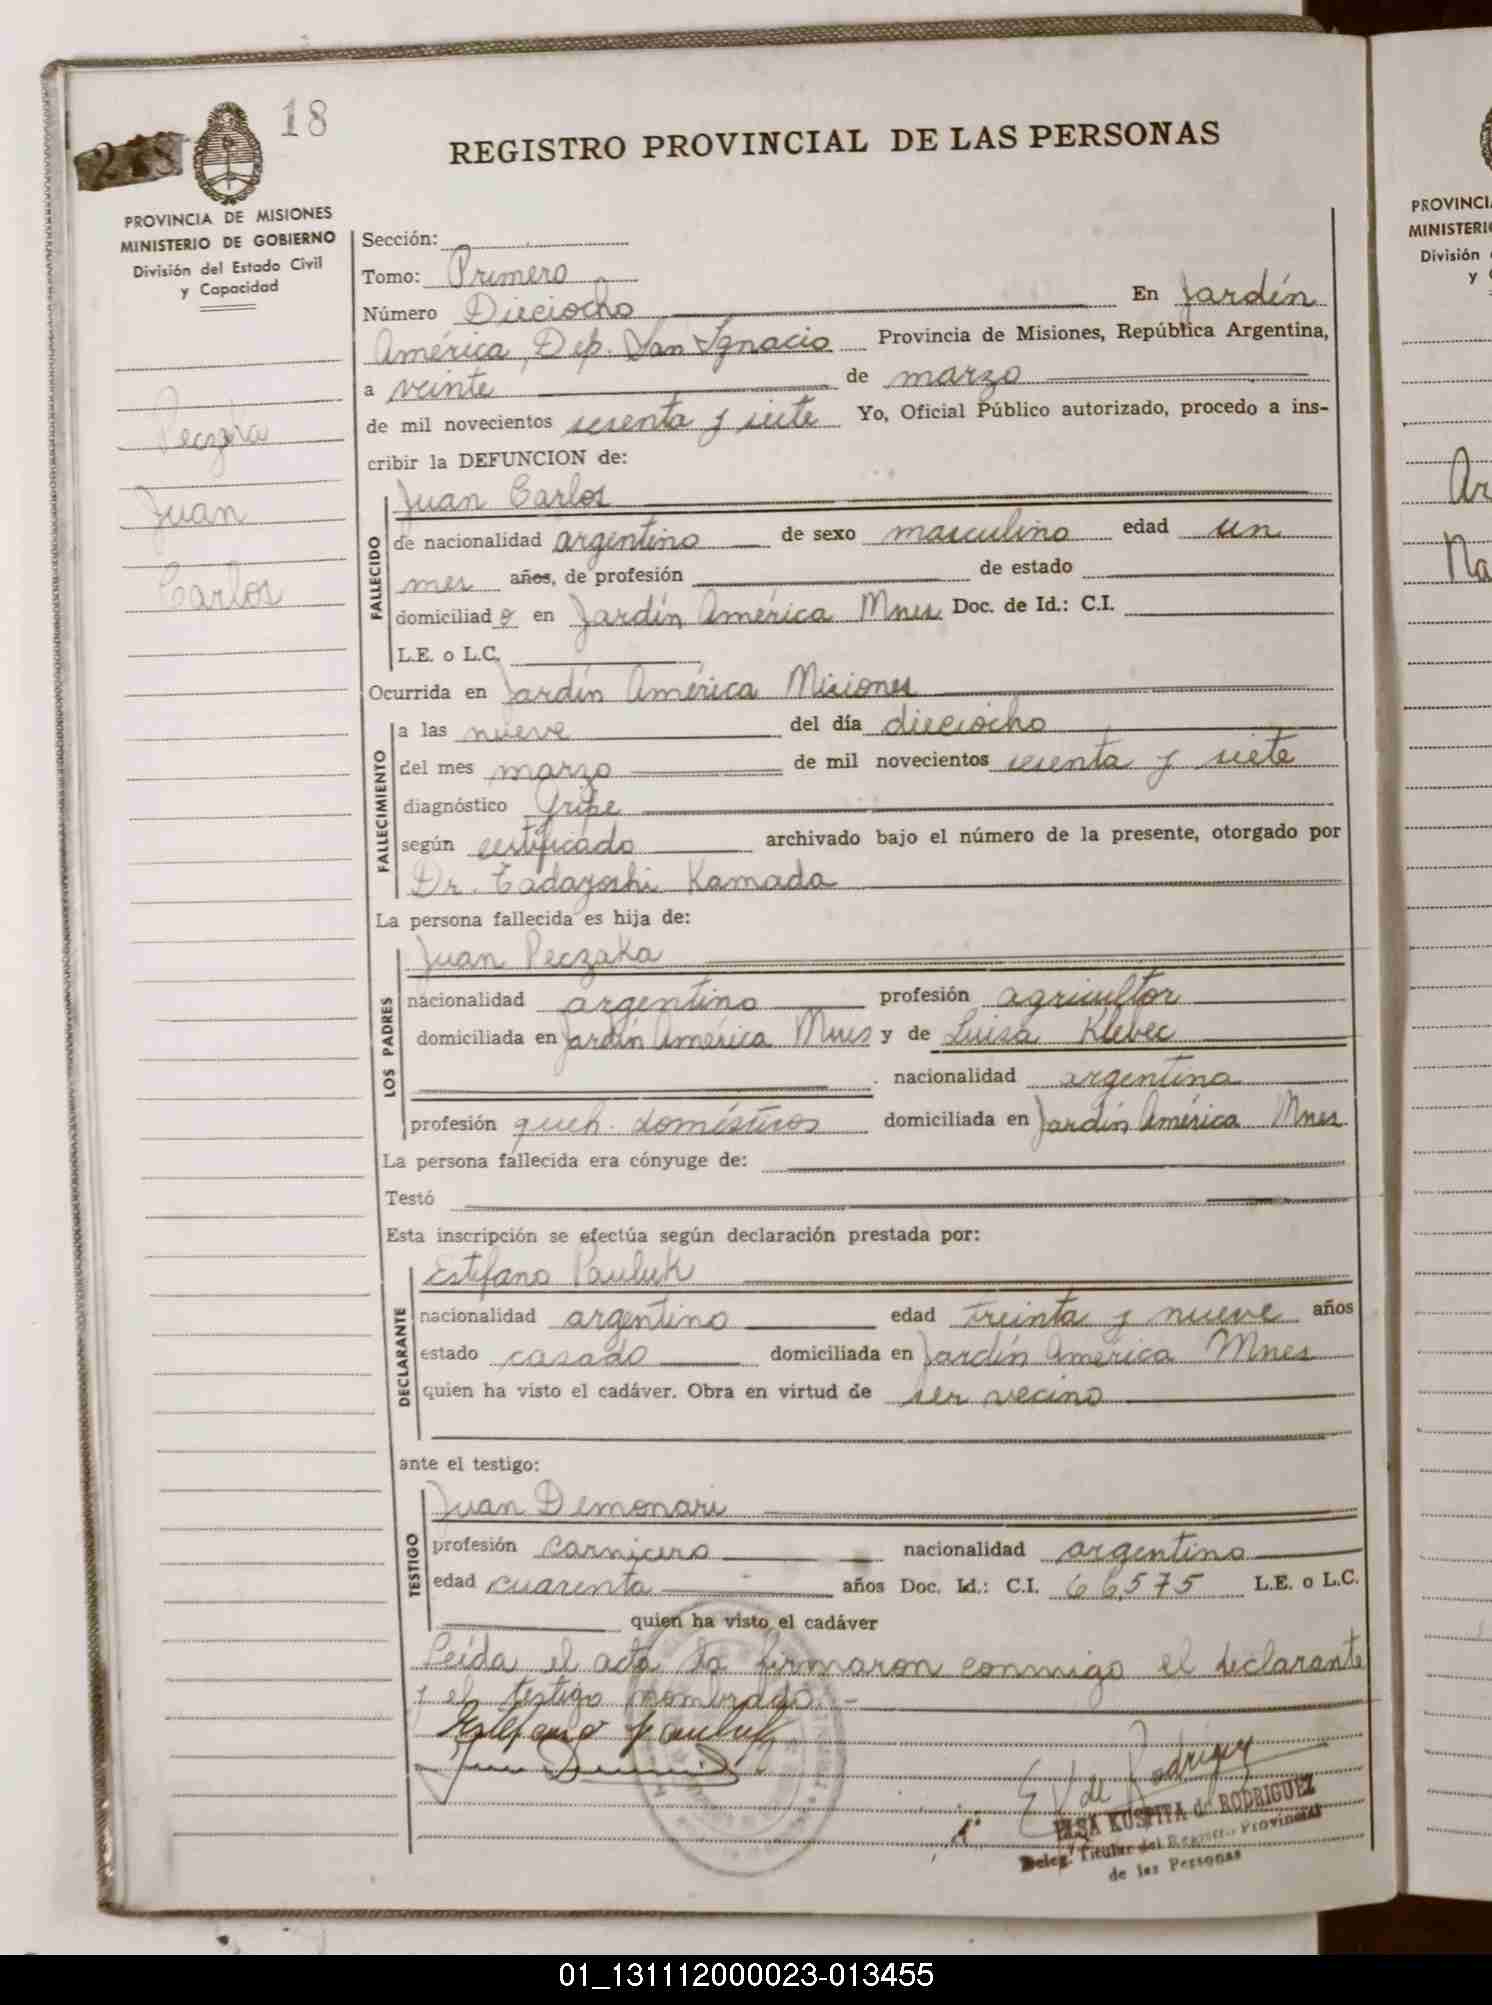 18
213
REGISTRO PROVINCIAL DE LAS PERSONAS
PROVINCIA DE MISIONES
MINISTERIO DE GOBIERNO
División del Estado Civil
y Capacidad
Peczaka
Juan
Carlos
Sección:
Tomo: Primero
Número Dieciocho En Jardín
América, Dep. San Ignacio Provincia de Misiones, República Argentina,
a veinte de marzo
de mil novecientos sesenta y siete Yo, Oficial Público autorizado, procedo a ins-
cribir la DEFUNCION de:
FALLECIDO
Juan Carlos
de nacionalidad argentino de sexo masculino edad un
mes años, de profesión de estado
domiciliado en Jardín América Mnes Doc. de Id.: C.I.
L.E. o L.C.
Ocurrida en Jardín América Misiones
FALLECIMIENTO
a las nueve del día dieciocho
del mes marzo de mil novecientos sesenta y siete
diagnóstico Gripe
según certificado archivado bajo el número de la presente, otorgado por
Dr. Tadayoshi Kamada
La persona fallecida es hija de:
LOS PADRES
Juan Peczaka
nacionalidad argentino profesión agricultor
domiciliada en Jardín América Mnes y de Luisa Klebec
nacionalidad argentina
profesión queh. domésticos domiciliada en Jardín América Mnes
La persona fallecida era cónyuge de:
Testó
Esta inscripción se efectúa según declaración prestada por:
DECLARANTE
Estefano Pauluk
nacionalidad argentino edad treinta y nueve años
estado casado domiciliada en Jardín América Mnes
quien ha visto el cadáver. Obra en virtud de ser vecino
ante el testigo:
TESTIGO
Juan Demonari
profesión carnicero nacionalidad argentino
edad cuarenta años Doc. Id.: C.I. 66,575 L.E. o L.C.
quien ha visto el cadáver
Leída el acta la firmaron conmigo el declarante
y el testigo nombrado.-
Estefano Pauluk
E K de Rodriguez
ELSA KUSPITA de RODRIGUEZ
Deleg. Titular del Registro Provincial
de las Personas
PROVINCI
MINISTERI
División
y
Ar
Na
01_131112000023-013455